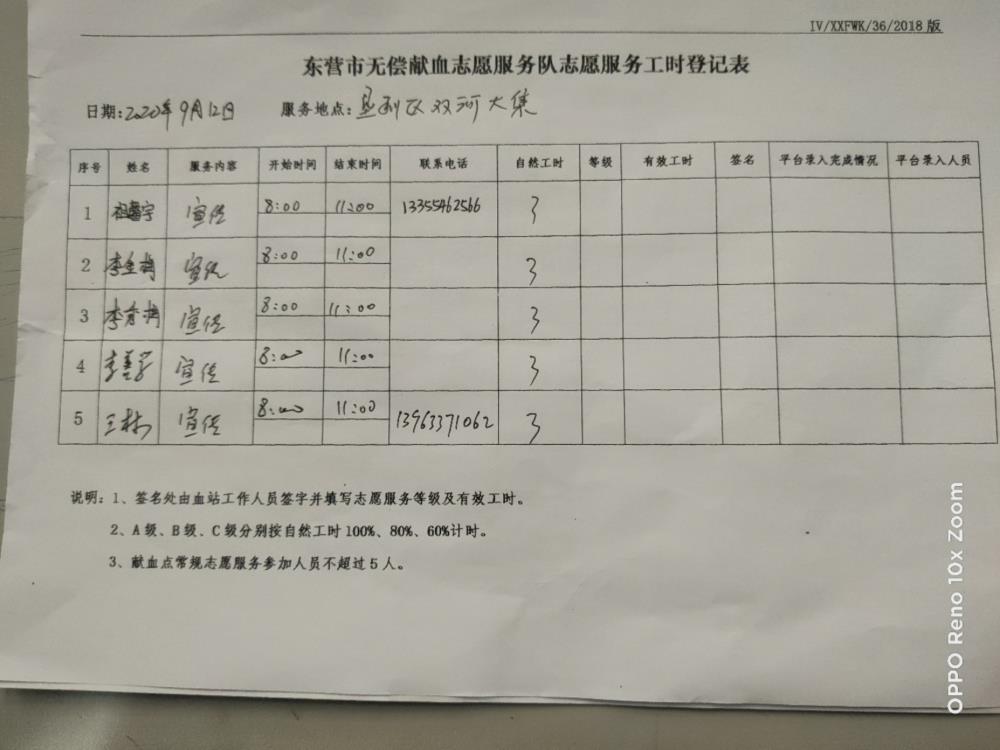 IV/XXFWK/36/2018版
东营市无偿献血志愿服务队志愿服务工时登记表
日期:2020年9月12日 服务地点:垦利区双河大集
序号 姓名 服务内容 开始时间 结束时间 联系电话 自然工时 等级 有效工时 签名 平台录入完成情况 平台录入人员
1 宇 宣传 8:00 11:00 13355462566 3
2 李金梅 宣传 8:00 11:00 3
3 李秀梅 宣传 8:00 11:00 3
4 李 宣传 8:00 11:00 3
5 王栋 宣传 8:00 11:00 13963371062 3
说明:1、签名处由血站工作人员签字并填写志愿服务等级及有效工时。
2、A级、B级、C级分别按自然工时100%、80%、60%计时。
3、献血点常规志愿服务参加人员不超过5人。
OPPO Reno 10x Zoom